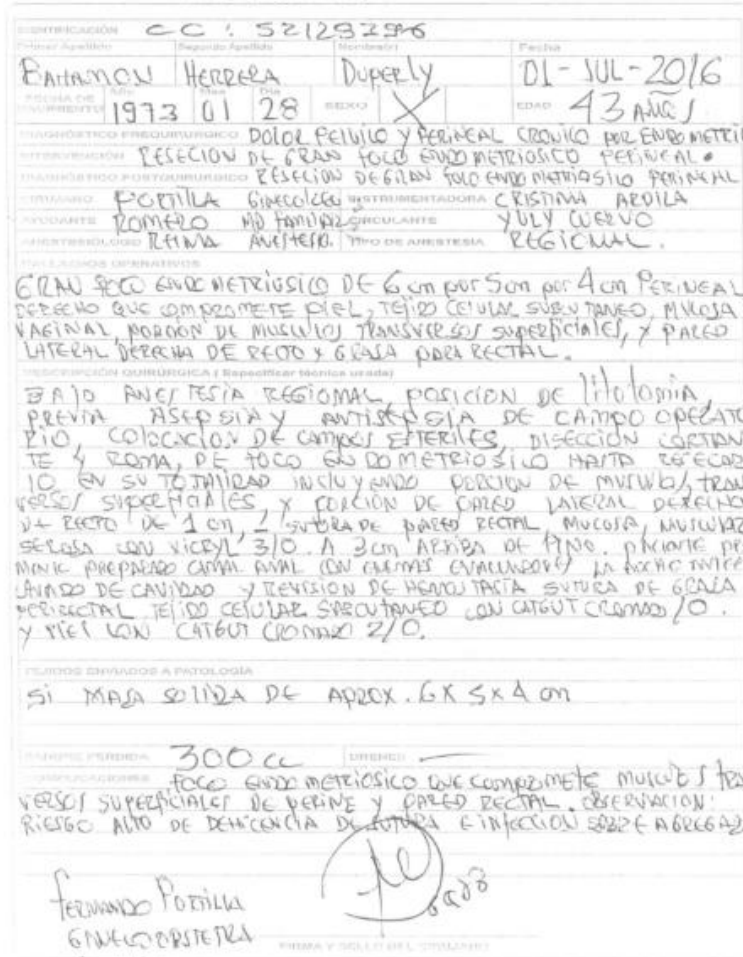 IDENTIFICACIÓN CC: 521293296
Primer Apellido Segundo Apellido Nombre(s) Fecha
BAHAMON HERRERA Duperly 01-JUL-2016
FECHA DE NACIMIENTO Año 1973 Mes 01 Día 28 SEXO X EDAD 43 AÑOS
DIAGNÓSTICO PREQUIRURGICO DOLOR PELVICO Y PERINEAL CRONICO POR ENDOMETRI
INTERVENCIÓN RESECION DE GRAN FOCO ENDOMETRIOSICO PERINEAL.
DIAGNÓSTICO POSTQUIRURGICO RESECION DE GRAN FOCO ENDOMETRIOSICO PERINEAL
CIRUJANO PORTILLA INSTRUMENTADORA CRISTINA ARDILA
AYUDANTE ROMERO MD FAMILIAR CIRCULANTE YULY CUERVO
ANESTESIOLOGO REINA ANESTESIO. TIPO DE ANESTESIA REGIONAL.
HALLAZGOS OPERATIVOS
GRAN FOCO ENDOMETRIOSICO DE 6 cm por 5 cm por 4 cm PERINEAL
DERECHO QUE COMPROMETE PIEL, TEJIDO CELULAR SUBCUTANEO, MUCOSA
VAGINAL, PORCION DE MUSCULOS TRANSVERSOS SUPERFICIALES, Y PARED
LATERAL DERECHA DE RECTO Y GRASA PARA RECTAL.
DESCRIPCIÓN QUIRÚRGICA (Especificar técnica usada)
BAJO ANESTESIA REGIONAL, POSICION DE litotomia,
PREVIA ASEPSIA Y ANTISEPSIA DE CAMPO OPERATO
RIO, COLOCACION DE CAMPOS ESTERILES, DISECCION CORTAN
TE Y ROMA, DE FOCO ENDOMETRIOSICO HASTA RESECAR
LO EN SU TOTALIDAD INCLUYENDO PORCION DE MUSCULOS TRAN
VERSOS SUPERFICIALES, Y PORCION DE PARED LATERAL DERECHO
DE RECTO DE 1 cm, SUTURA DE PARED RECTAL, MUCOSA, MUSCULAR
SEROSA CON VICRYL 3/0. A 3 cm ARRIBA DE ANO. PACIENTE
PREPARADO CANAL ANAL CON ENEMAS EVACUADORES LA NOCHE
LAVADO DE CAVIDAD Y REVISION DE HEMOSTASIA SUTURA DE GRASA
PERIRECTAL TEJIDO CELULAR SUBCUTANEO CON CATGUT CROMADO /0.
Y PIEL CON CATGUT CROMADO 2/0.
TEJIDOS ENVIADOS A PATOLOGÍA
SI MASA SOLIDA DE APROX. 6 X 5 x 4 cm
SANGRE PERDIDA 300 cc DRENES —
COMPLICACIONES FOCO ENDOMETRIOSICO QUE COMPROMETE MUSCULOS TRA
VERSOS SUPERFICIALES DE PERINE Y PARED RECTAL. OBSERVACION:
RIESGO ALTO DE DEHICENCIA DE SUTURA E INFECCION SOBRE AGREGAD
FERNANDO PORTILLA
GINECOOBSTETRA
FIRMA Y SELLO DEL CIRUJANO